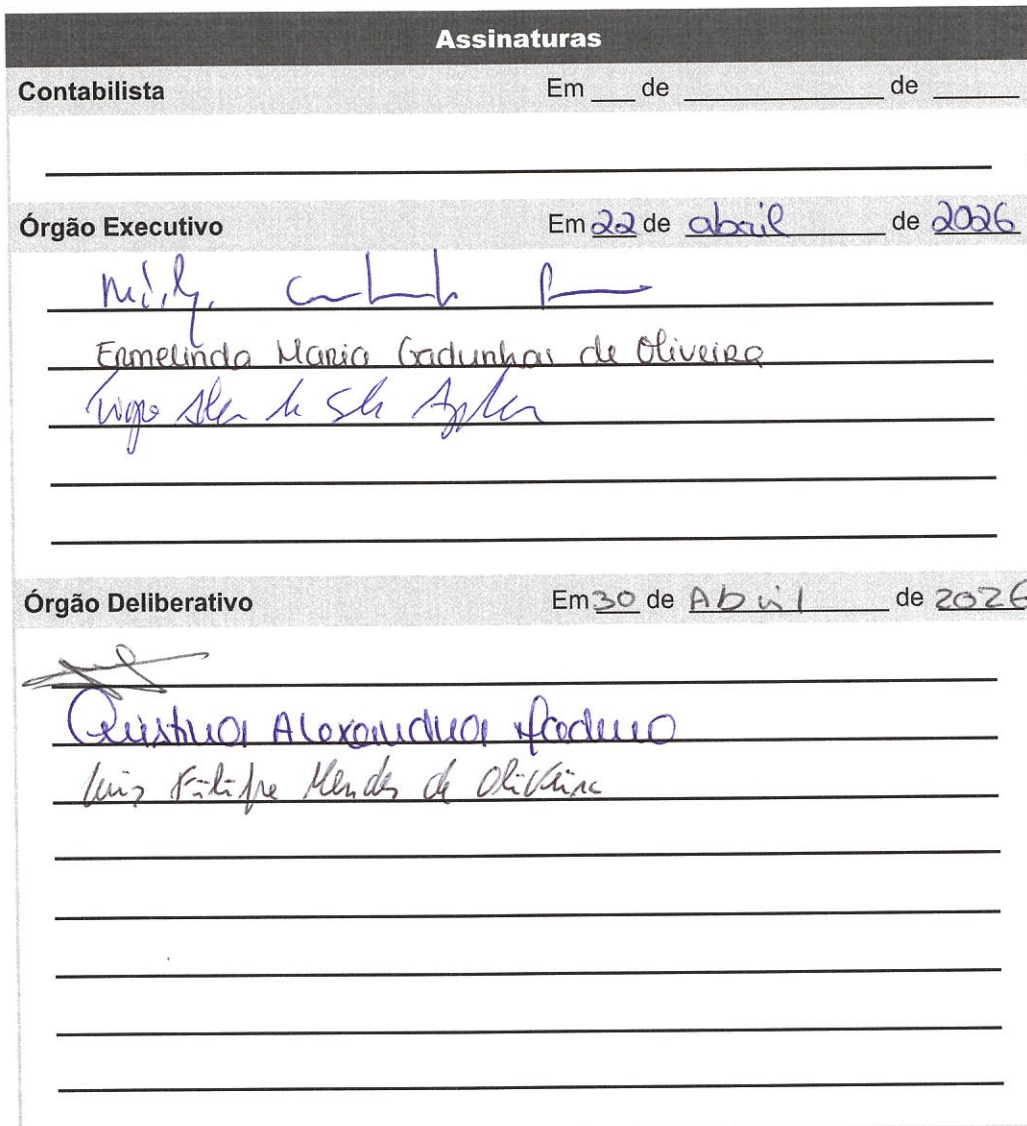 Assinaturas
Contabilista Em ___ de ______________ de ______
Órgão Executivo Em 22 de abril de 2026
Ermelinda Maria Gadunhas de Oliveira
Órgão Deliberativo Em 30 de Abril de 2026
Cristina Alexandra
Luis Filipe Mendes de Oliveira